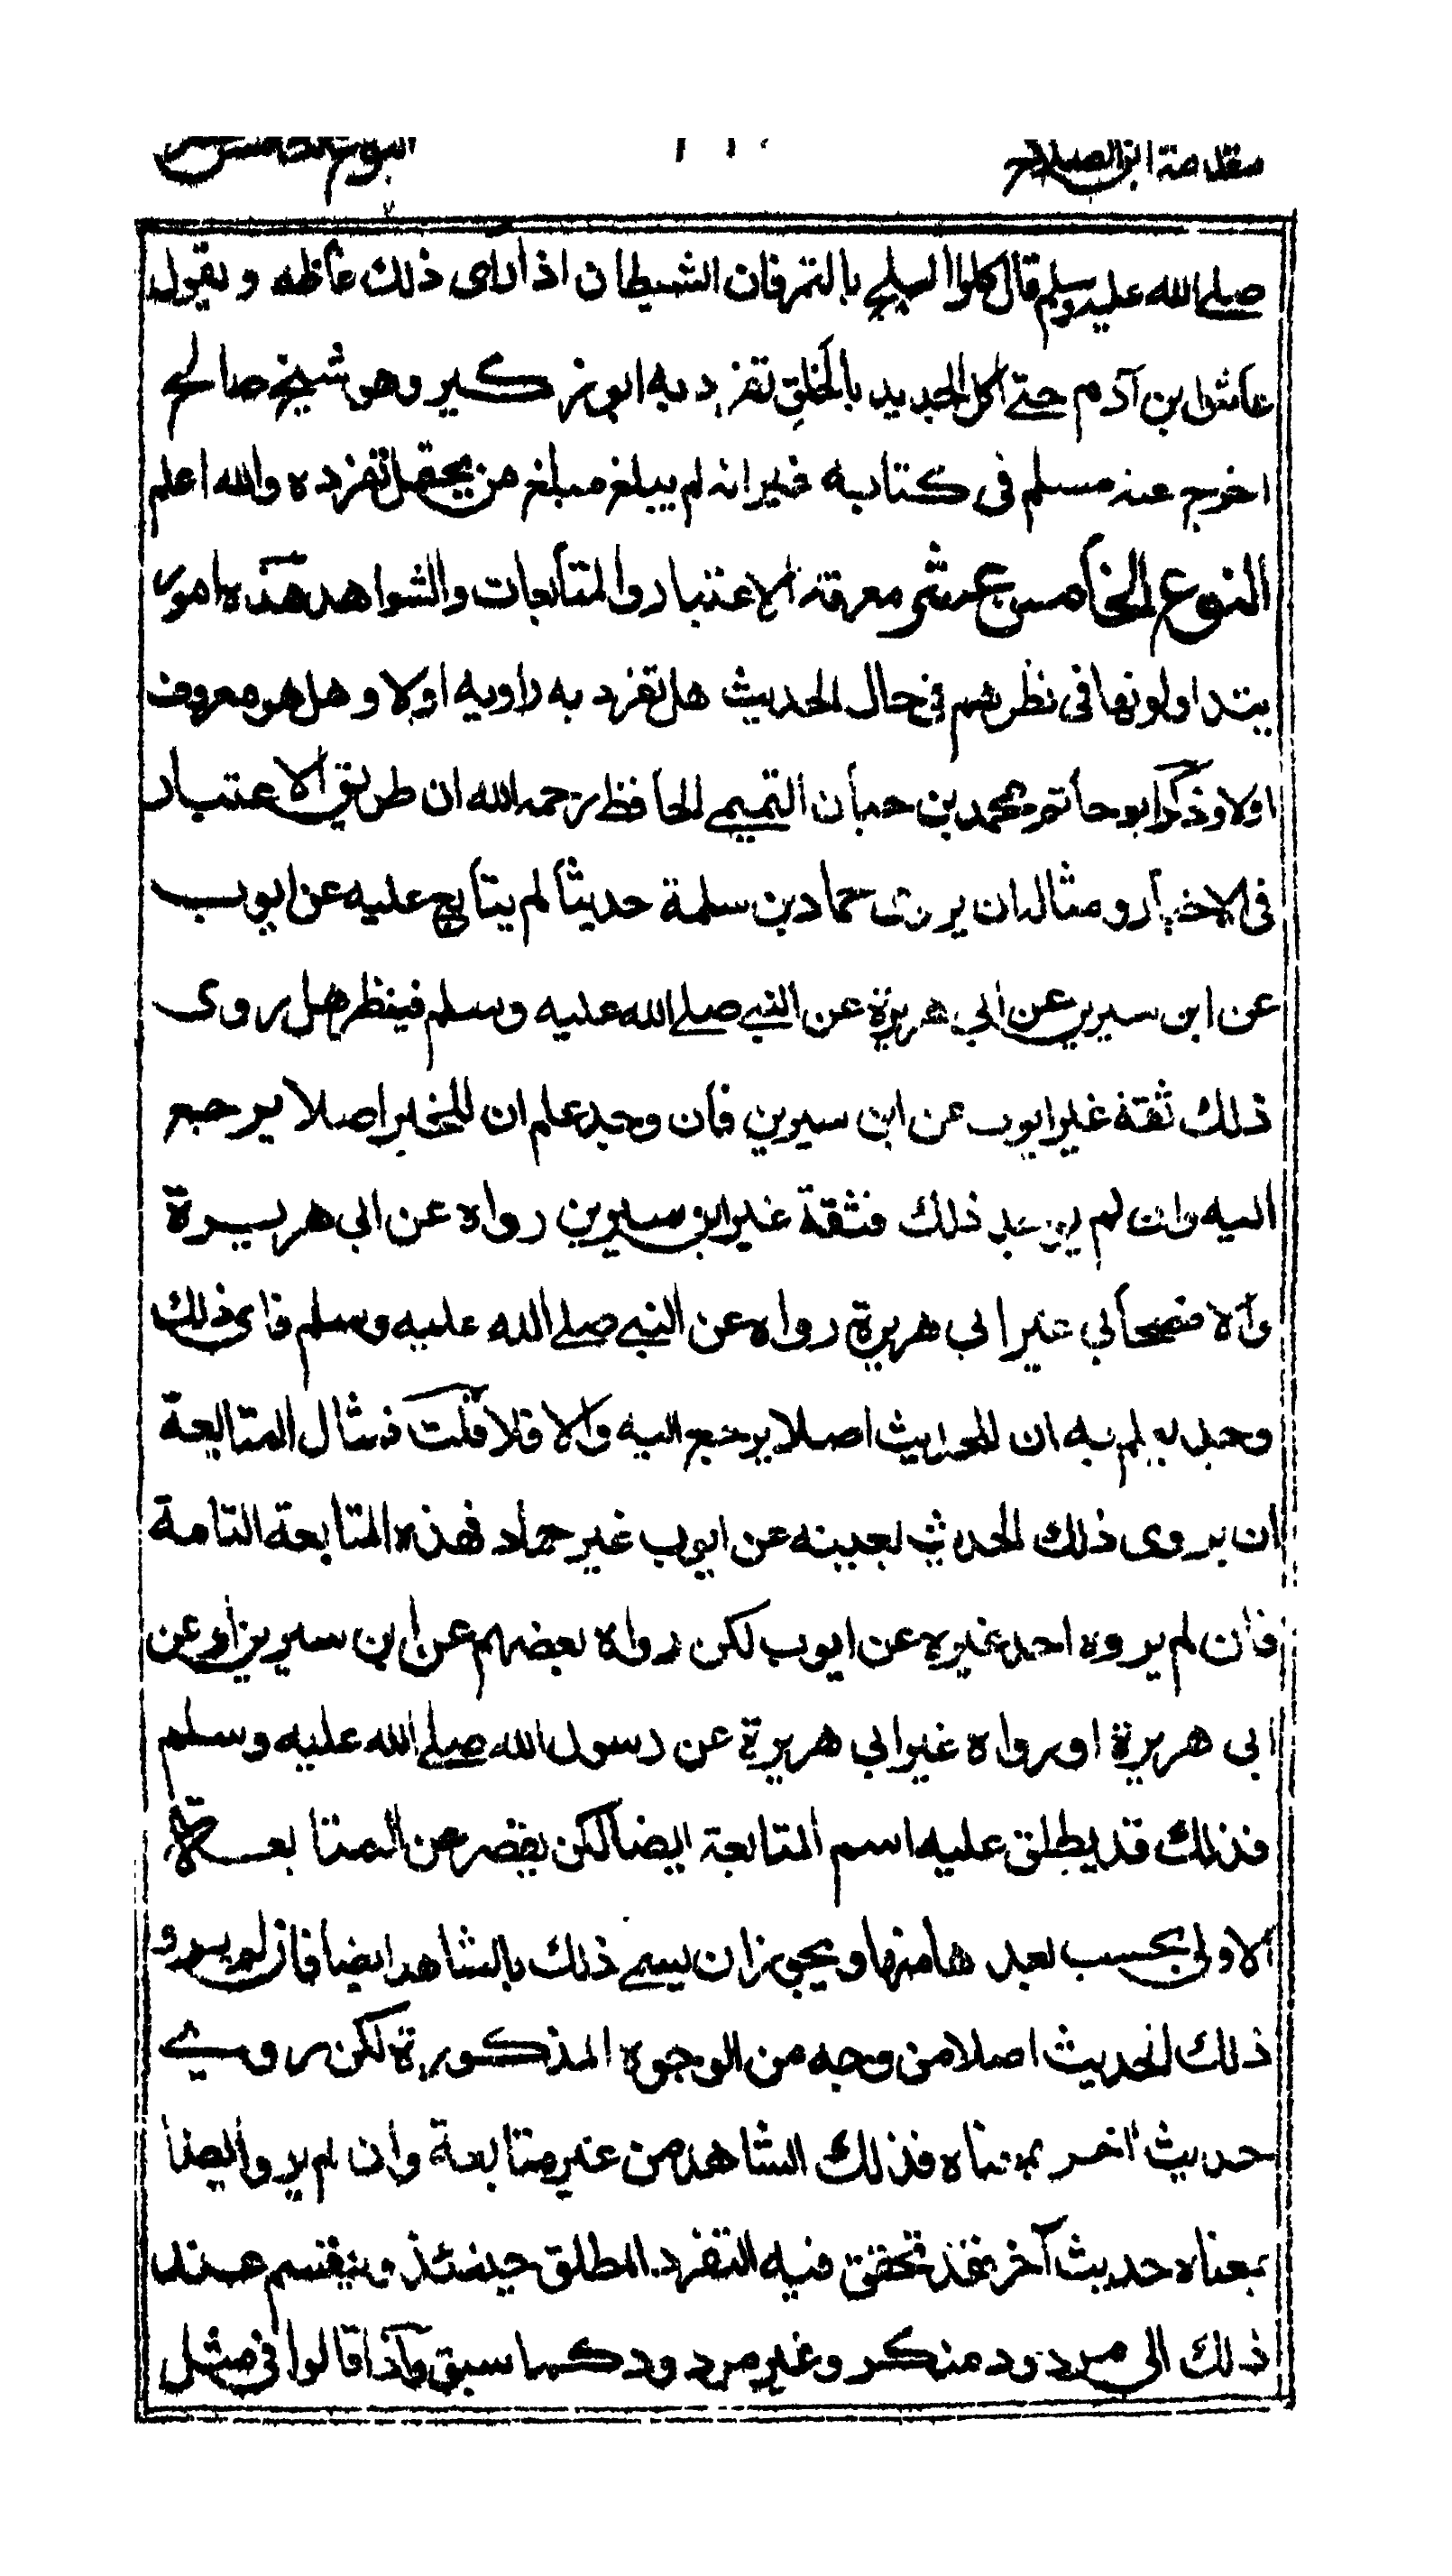 مقدمة ابن الصلاح النوع الخامس عشر
صلے الله عليه وسلم قال كلوا البلح بالتمر فان الشيطان اذا راى ذلك غاظه ويقول
عاش ابن آدم حتے اكل الجديد بالخلق تفرد به ابو زكير وهو شيخ صالح
اخرج عنه مسلم فى كتابه غير انه لم يبلغ مبلغ من يحتمل تفرده والله اعلم
النوع الخامس عشر معرفة الاعتبار والمتابعات والشواهد هذه امور
يتداولونها فى نظرهم فى حال الحديث هل تفرد به راويه اولا وهل هو معروف
اولا وذكر ابو حاتم محمد بن حبان التميمے الحافظ رحمه الله ان طريق الاعتبار
فى الاخبار ومثاله ان يروى حماد بن سلمة حديثا لم يتابع عليه عن ايوب
عن ابن سيرين عن ابي هريرة عن النبے صلے الله عليه وسلم فينظر هل روى
ذلك ثقة غير ايوب عن ابن سيرين فان وجد علم ان للخبر اصلا يرجع
اليه وان لم يوجد ذلك فثقة غير ابن سيرين رواه عن ابى هريرة
والا فصحابي غير ابي هريرة رواه عن النبے صلے الله عليه وسلم فاى ذلك
وجد يعلم به ان للحديث اصلا يرجع اليه والا فلا قلت فمثال المتابعة
ان يروى ذلك الحديث بعينه عن ايوب غير حماد فهذه المتابعة التامة
فان لم يروه احد غيره عن ايوب لكن رواه بعضهم عن ابن سيرين او عن
ابى هريرة او رواه غير ابي هريرة عن رسول الله صلے الله عليه وسلم
فذلك قد يطلق عليه اسم المتابعة ايضا لكن يقصر عن المتابعة
الاولى بحسب بعدها منها ويجوز ان يسمے ذلك بالشاهد ايضا فان لم يرو
ذلك الحديث اصلا من وجه من الوجوه المذكورة لكن روي
حديث اخر بمعناه فذلك الشاهد من غير متابعة وان لم يرو ايضا
بمعناه حديث آخر فقد تحقق فيه التفرد المطلق حينئذ وينقسم عند
ذلك الى مردود منكر وغير مردود كما سبق واذا قالوا فى مثل